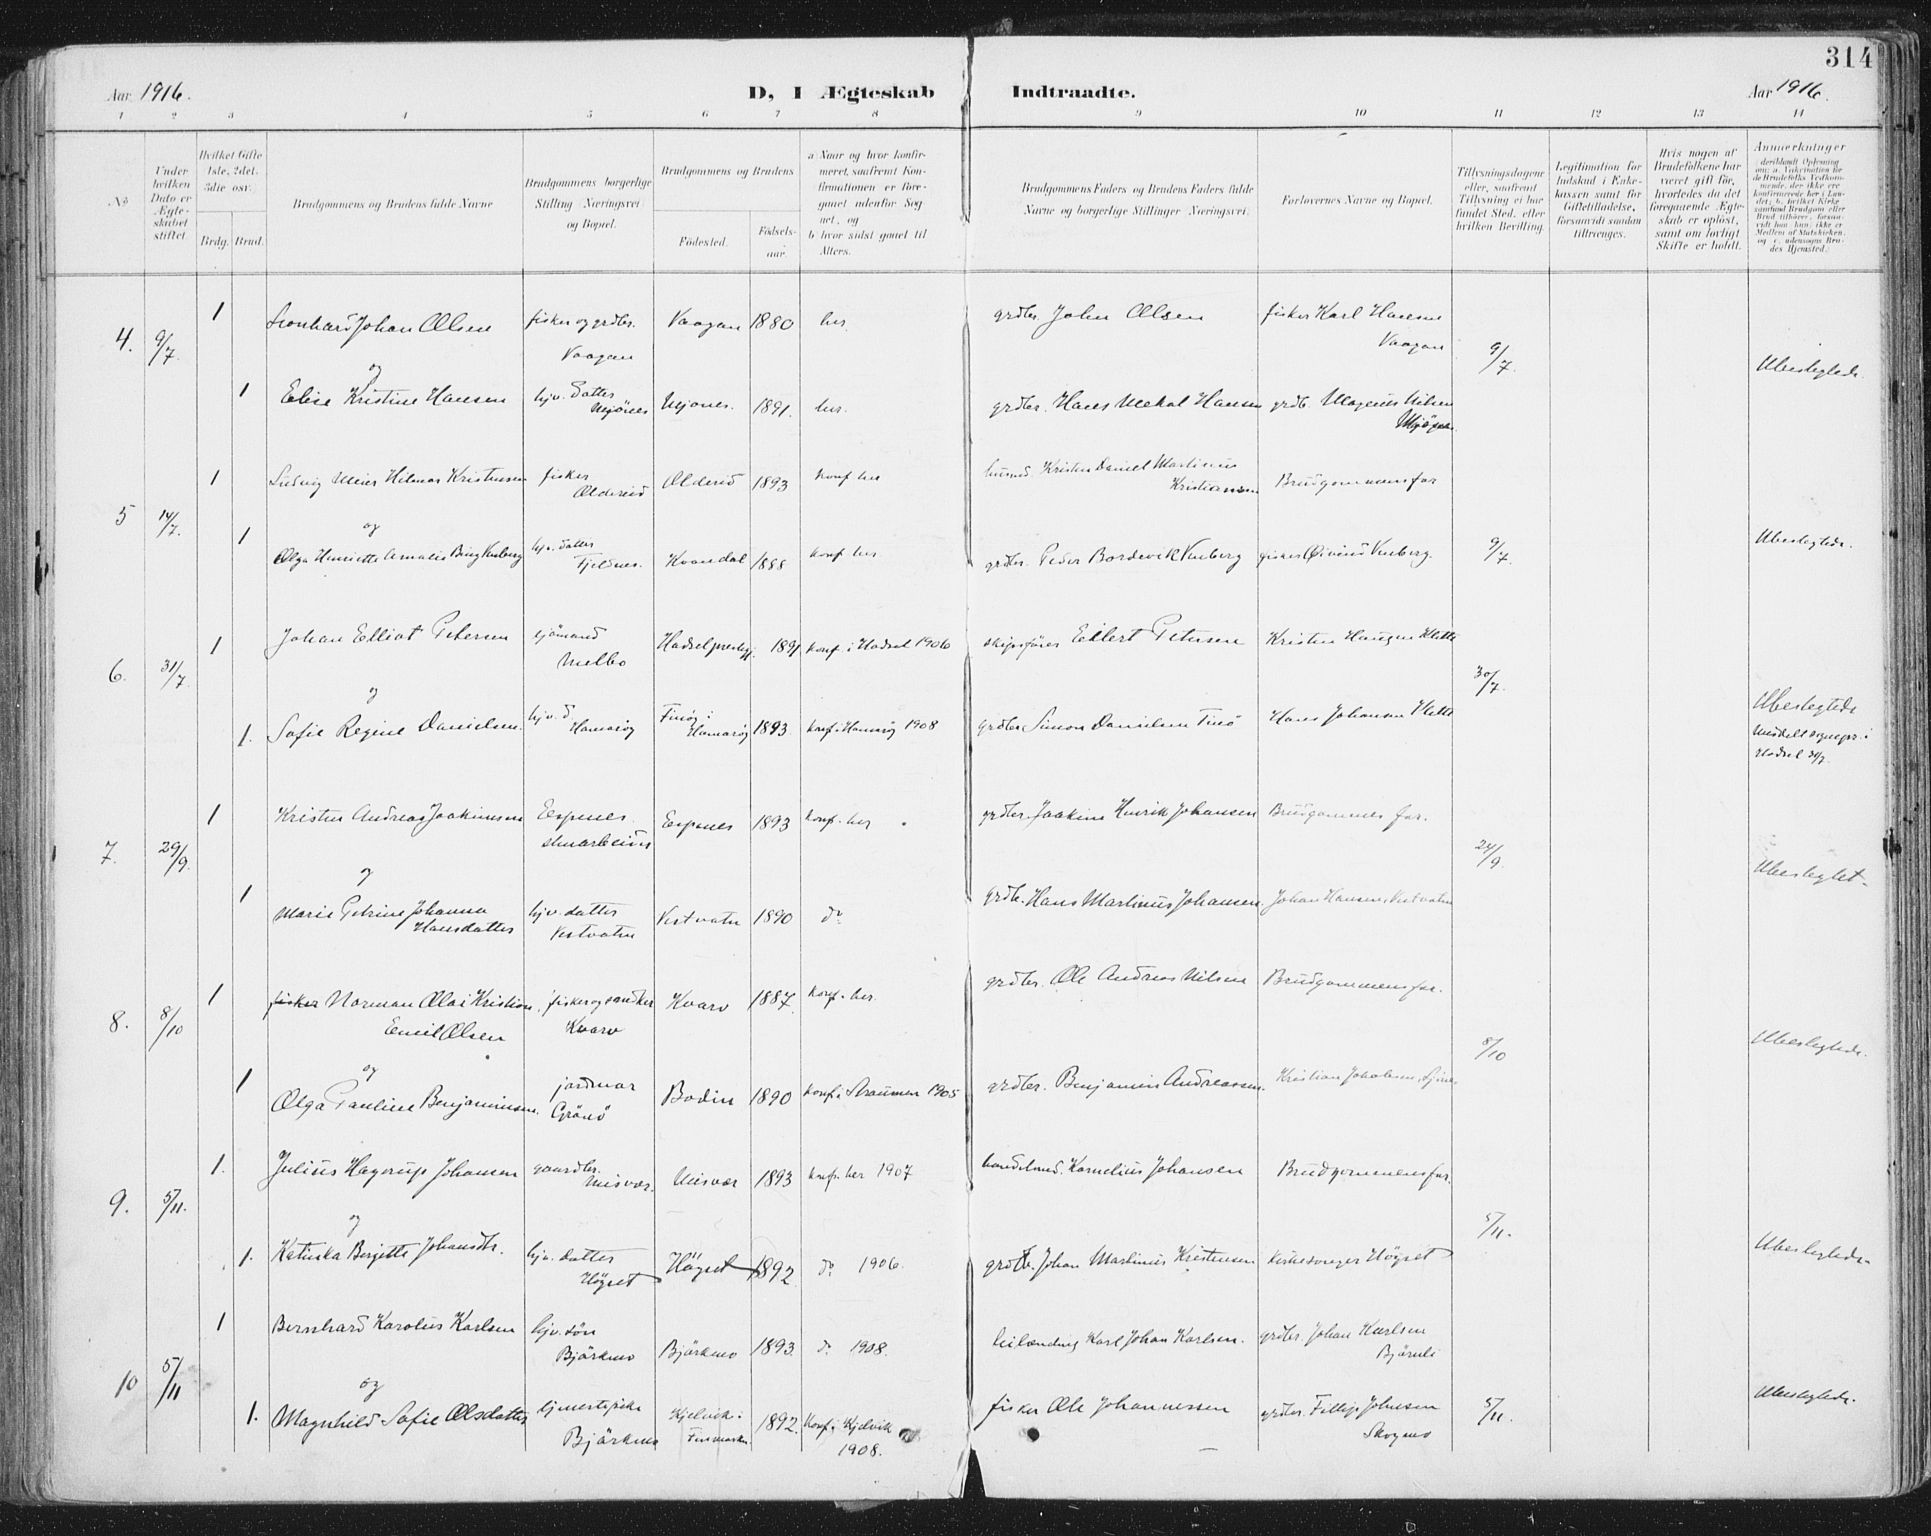 314
Aar 1916.
D, I Ægteskab Indtraadte.
Aar 1916.
1 2 3 4 5 6 7 8 9 10 11 12 13 14
No
Under hvilken Dato er Ægteskabet stiftet.
Hvilket Gifte 1ste, 2det, 3die osv.
Brdg. Brud.
Brudgommens og Brudens fulde Navne
Brudgommens borgerlige Stilling Næringsvei og Bopæl.
Brudgommens og Brudens
Fødested.
Fødselsaar.
a Naar og hvor konfirmeret, saafremt Konfirmationen er foregaaet udenfor Sognet, og
b hvor sidst gaaet til Alters.
Brudgommens Faders og Brudens Faders fulde Navne og borgerlige Stillinger Næringsvei.
Forlovernes Navne og Bopæl.
Tillysningsdagene eller, saafremt Tillysning ei har fundet Sted, efter hvilken Bevilling.
Legitimation for Indskud i Enkekassen samt for Giftetilladelse, forsaavidt saadan tiltrænges.
Hvis nogen af Brudefolkene har været gift før, hvorledes da det foregaaende Ægteskab er opløst, samt om lovligt Skifte er holdt.
Anmerkninger
4. 9/7. 1 Leonhard Johan Olsen fisker og grdbr. Vaagan Vaagan 1880 her. grdbr. John Olsen fisker Karl Hansen Vaagan 9/7. Ubeslegtede.
og
1 Elise Kristine Hansen hjv. datter Mjönes Mjones. 1891. her. grdbr. Hans Mekal Hansen grdb. Magnus Nilsen
5 14/7. 1 Ludvig Meier Hilmar Kristensen fisker Oldereid Oldereid 1893 konf her husmd. Kristen Daniel Martinus Kristiansen Brudgommens far
og
1 Olga Henriette Amalie Bing Venberg hjv. datter Fjeldnes. Kvandal 1888 konf her grdbr. Peder Bordevik Venberg fisker Øivind Venberg. 9/7. Ubeslegtede.
6. 31/7. 1 Johan Elliot Petersen sjömand Melbo Hadsel prestegj. 1891 konf. i Hadsel 1906 skipsförer Eilert Petersen Kristen Haugen 30/7.
og
1. Sofie Regine Danielsen. hjv. d. Hamaröy Finöy i Hamaröy 1893 konf. i Hamaröy 1908 grdbr. Simon Danielsen Finö Hans Johanson Ubeslegtede meddelt sognepr. i Hadsel 31/7.
7. 29/9. 1 Kristen Andreas Joakimsen Espenes. stuearbeider Espenes 1893 konf. her grdbr. Joakim Henrik Johansen Brudgommens far. 24/9. Ubeslegtet.
og
1 Marie Petrine Johanna Hansdatter hjv. datter Vestvatn Vestvatn 1890 do grdb. Hans Martinus Johansen. Johan Hansen, Vestvatn
8. 8/10 1 fisker Norman Olai Kristian Emil Olsen fisker og Kvarv Kvarv 1887. konf. her. grdbr. Ole Andreas Nilsen Brudgommens far. 8/10 Ubeslegtede.
og
1 Olga Pauline Benjaminsen. jordmor Grönö Bodin 1890 konf i Straumen 1905 grdbr. Benjamin Andreassen. Kristian Jakobsen,
9. 5/11. 1. Julius Hagerup Johansen gaardbr. Misvær. Misvær 1893 konf. her 1907 handelsmd. Kornelius Johansen Brudgommens far. 5/11.
og
1. Katinka Bergitte Johansdtr. hjv. datter Höyset Höyset 1892 do 1906. grdb. Johan Martinus Kristensen kirkesanger Höyset Ubeslegtede.
10 5/11 1 Bernhard Karolus Karlsen hjv. sön Björkmo Björkmo 1893. do 1908. leilænding Karl Johan Karlsen. grdbr. Johan Karlsen Björnli
og
1. Magnhild Sofie Olsdatter tjenestepike Björkmo Kjelvik i Finmarken 1892. konf. i Kjelvik 1908. fisker Ole Johannessen grdbr. Fillip Johnsen Skogmo 5/11. Ubeslegtede.